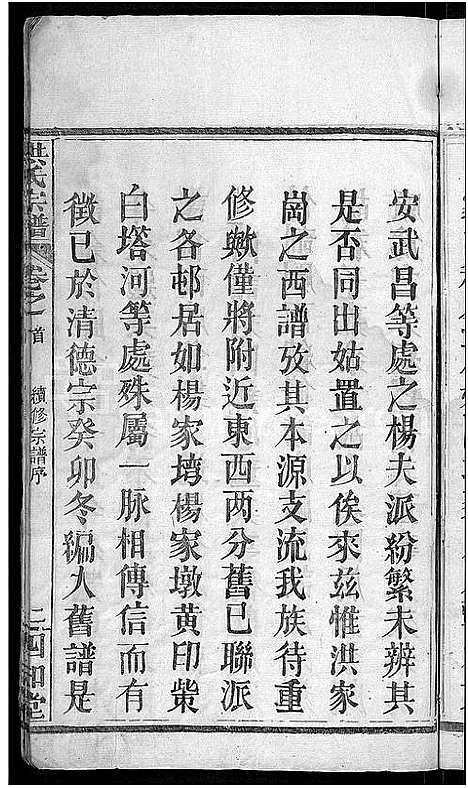 安武昌等處之楊夫派紛繁未辨其
是否同出姑置之以俟來兹惟洪家
崗之西譜攷其本源支流我族待重
修歟僅將附近東西两分舊已聯派
之各邨居如楊家塆楊家墩黄印柴
白塔河等處殊屬一脉相傳信而有
徵已於清德宗癸卯冬編入舊譜是
氏宗譜 卷之首 續修宗譜序 二 四知堂